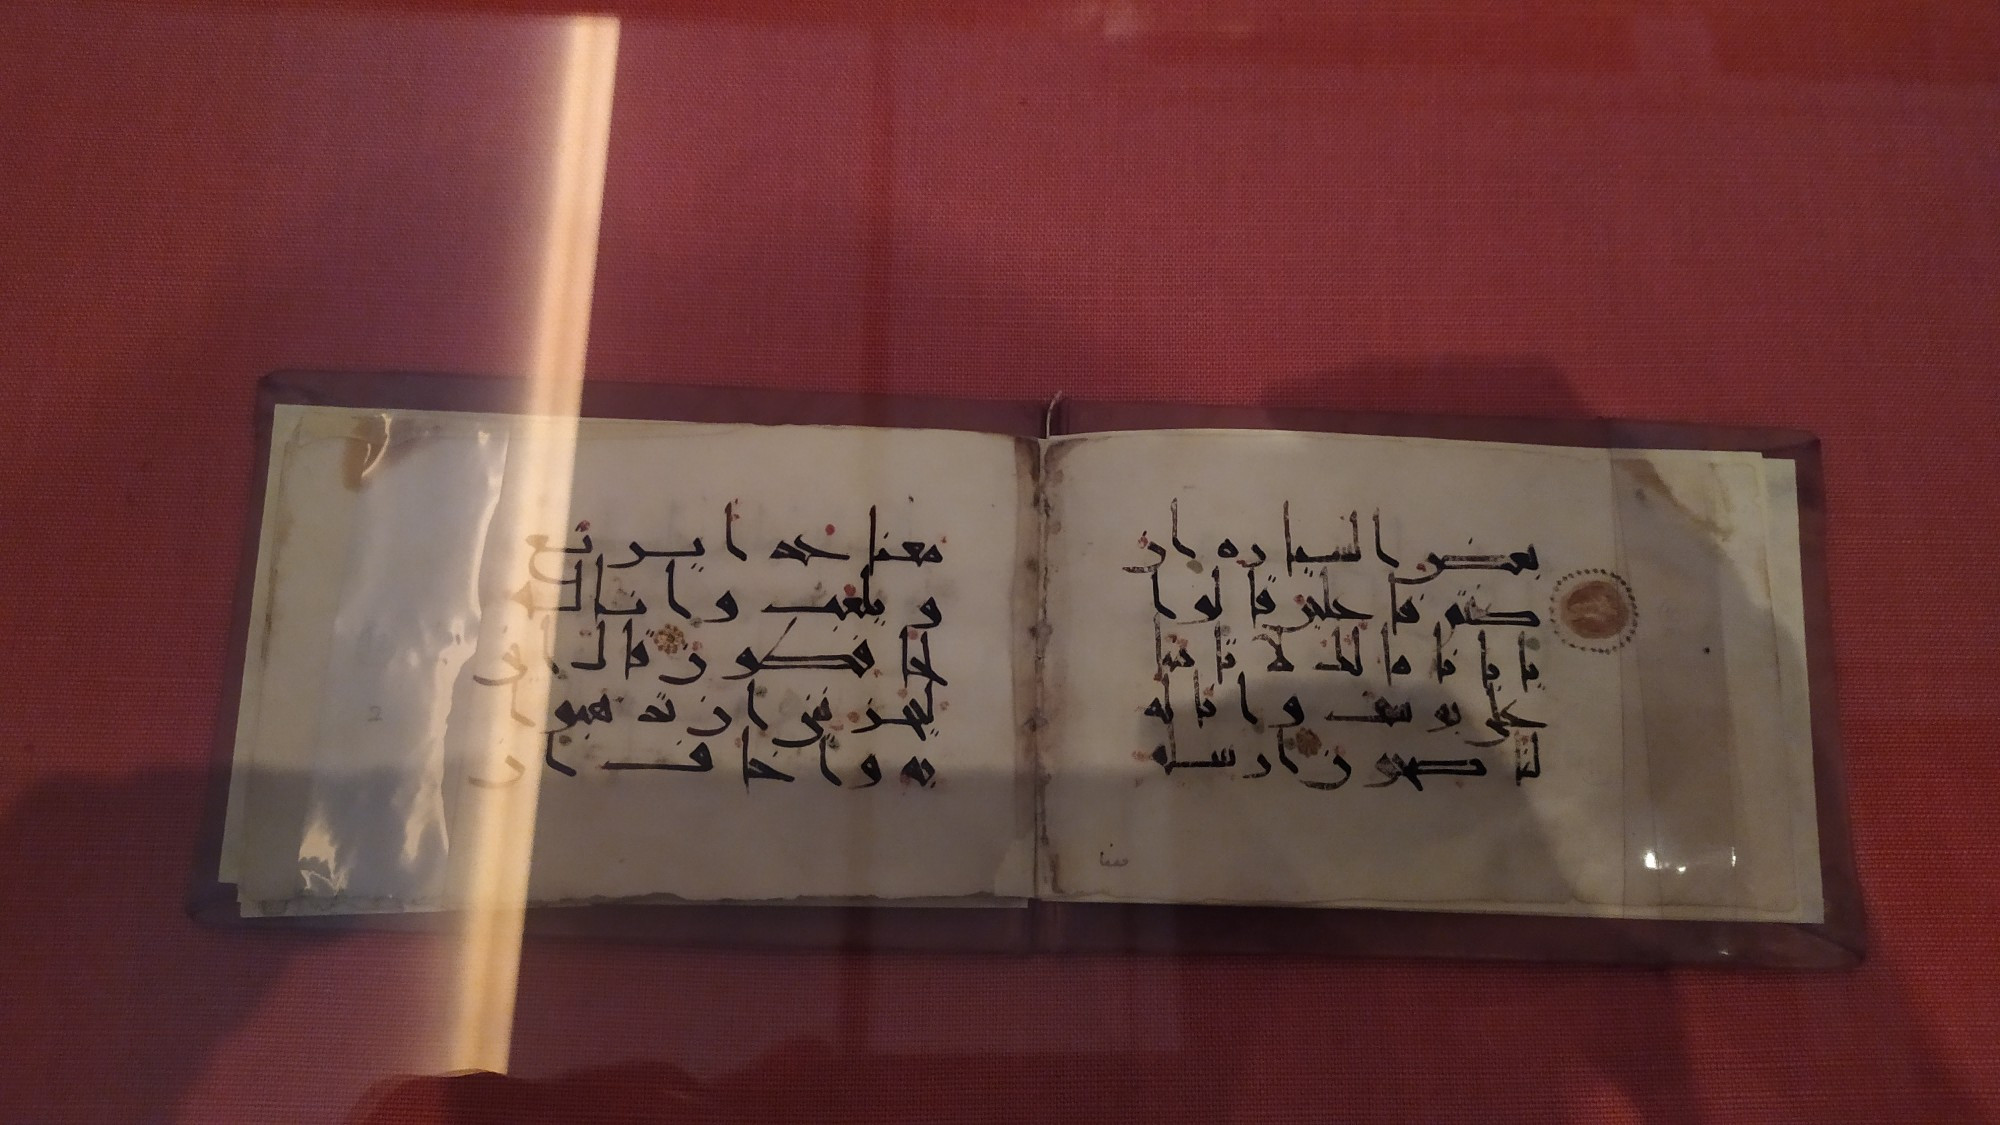 بعض السيارة ان
كنتم فاعلين قالوا
يا بانا ما لك لا تامنا
على يوسف وانا له
لناصحون ارسله
معنا
معنا غدا يرتع
ويلعب وانا له
لحافظون قال اني
ليحزنني ان تذهبوا
به واخاف ان